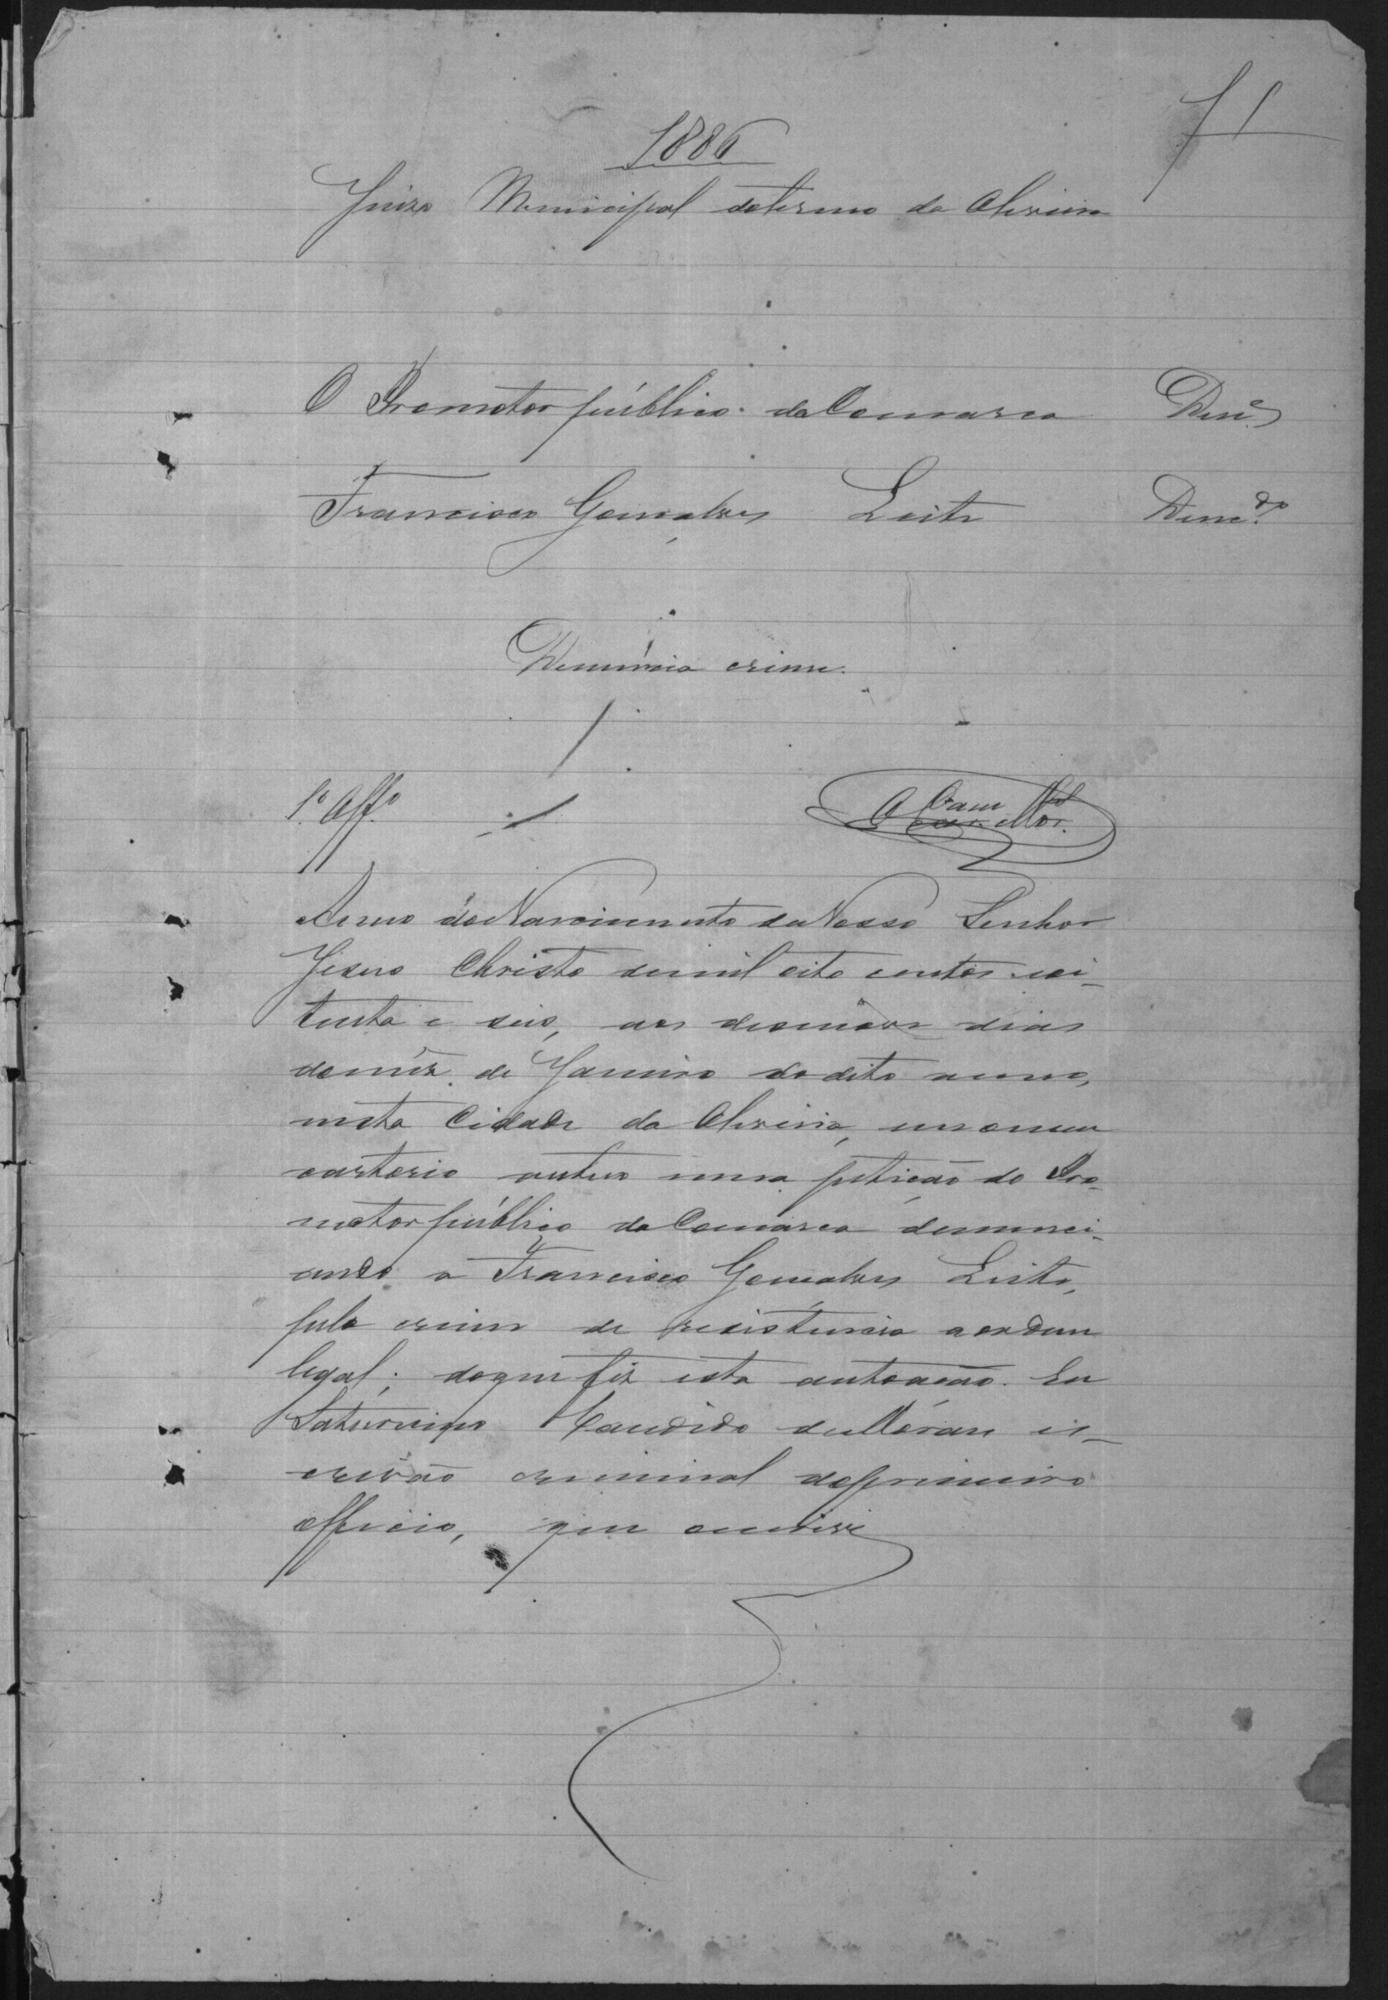 1
1886
Juizo Municipal do termo da Oliveira
O Promotor público da Comarca Den.e
Francisco Gonçalves Leite Denc.do
Denuncia crime.
1.º Off.º
Anno do Nascimento de Nosso Senhor
Jesus Christo de mil oito centos e oi-
tenta e seis, aos desenove dias
do mêz de Janeiro do dito anno,
nesta Cidade da Oliveira, em o meu
cartorio autuo uma petição do Pro-
motor público da Comarca denunci-
ando a Francisco Gonçalves Leite,
pelo crime de resistencia a ordem
legal; do que fiz esta autoação. Eu
Saturnino Candido de Moraes es-
crivão criminal do primeiro
officio, que escrevi